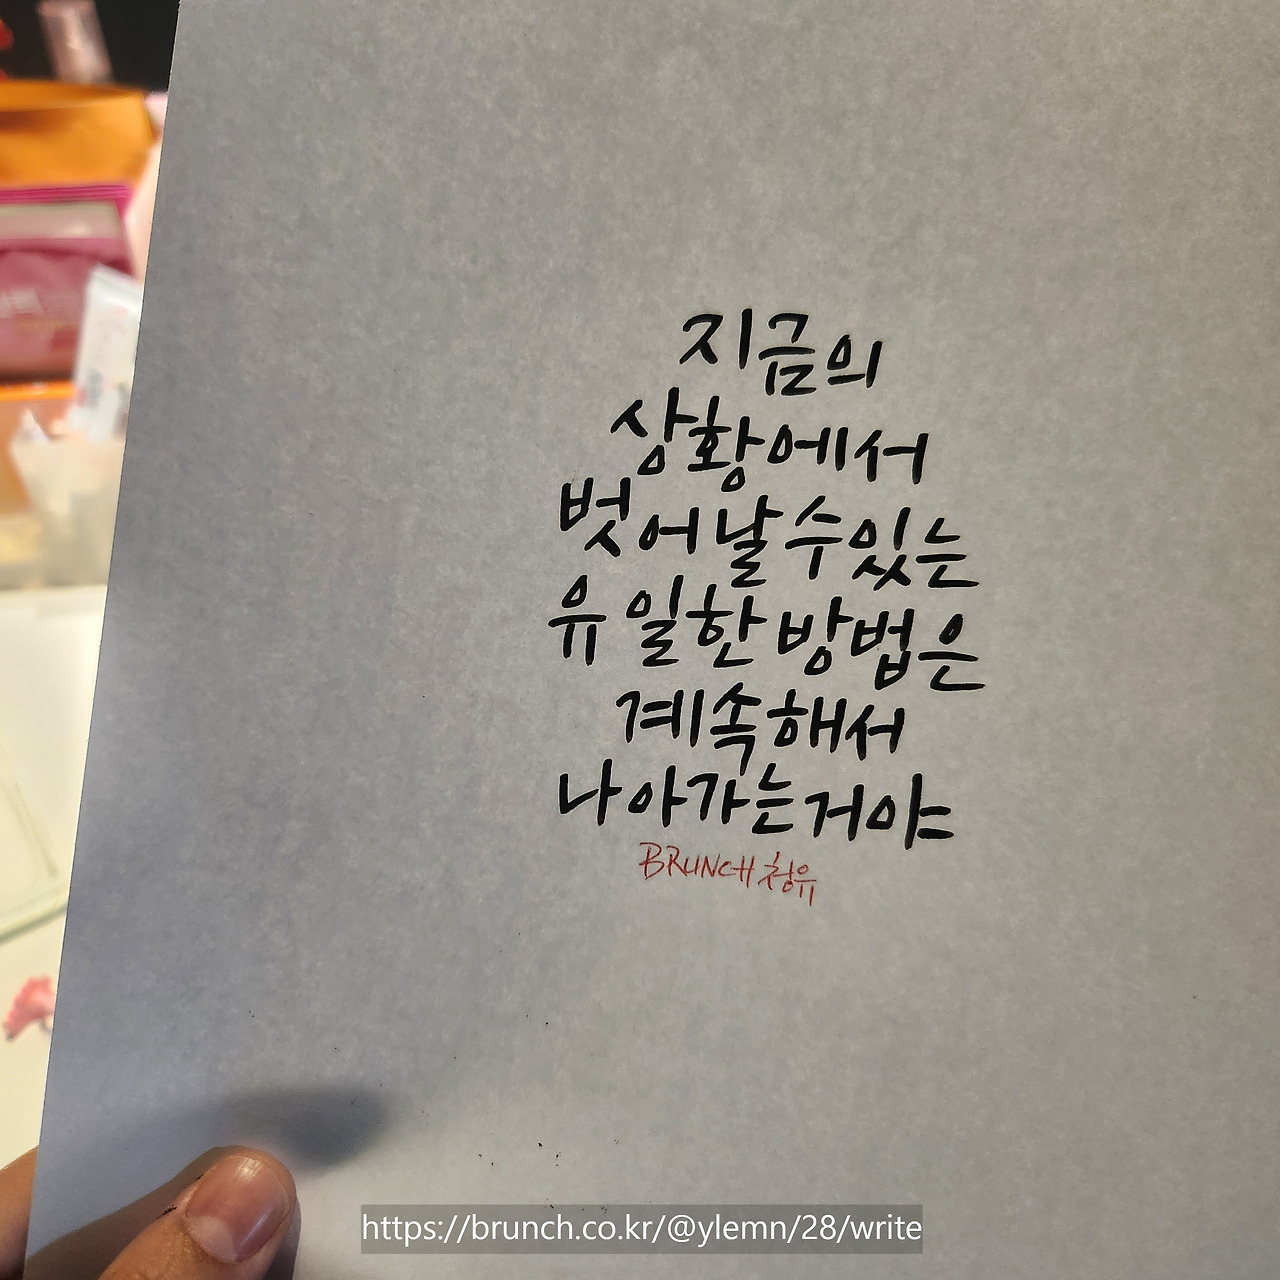 지금의
상황에서
벗어날 수 있는
유일한 방법은
계속해서
나아가는거야
BRUNCH 청유
https://brunch.co.kr/@ylemn/28/write